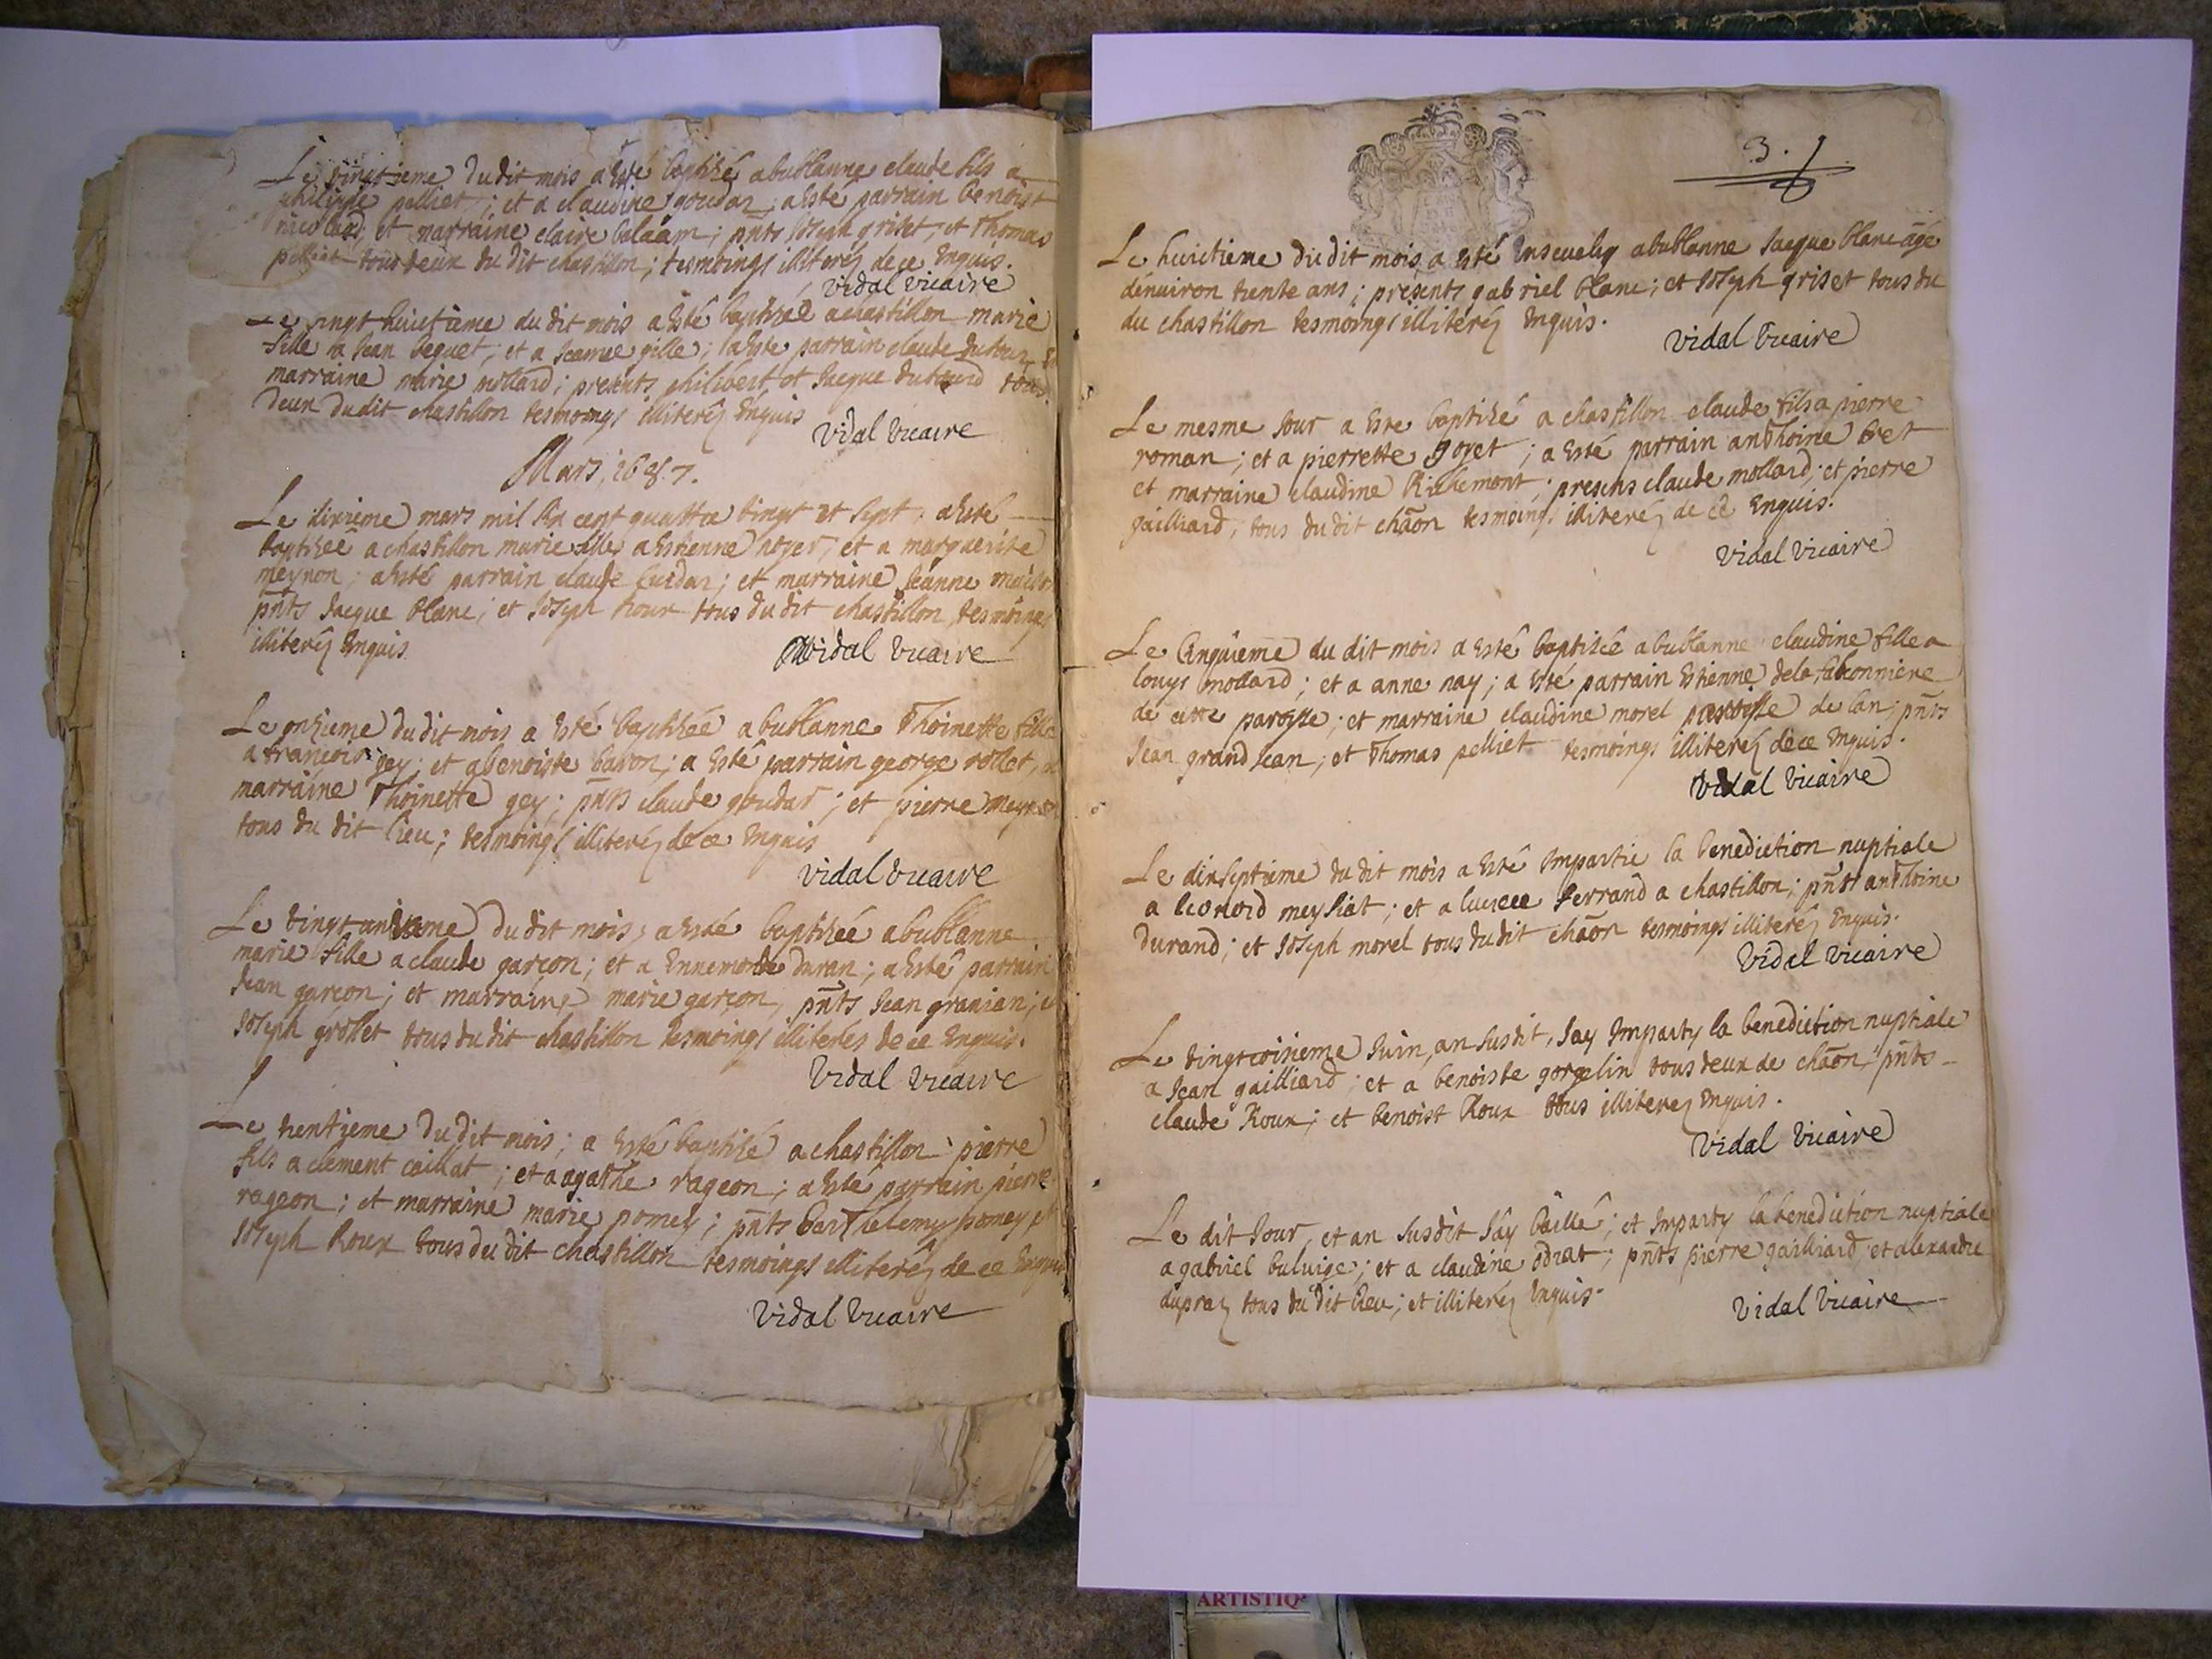 Le vingtieme du dit mois a esté baptisé a bublanne claude fils a
philippe pelliet; et a claudine goudar; a esté parrain benoist
et marraine claire balaam; pnts Joseph griset, et Thomas
pelliet tous deux du dit chastillon; tesmoings illiterés de ce Enquis.
vidal vicaire
Le vingt huictieme du dit mois a esté baptisée a chastillon marie
fille a Jean beguet; et a Jeanne gille; a esté parrain claude
marraine marie mollard; presents philibert et Jacque dutourd tous
deux du dit chastillon tesmoings illiterés Enquis
vidal vicaire
Mars, 1687.
Le dixieme mars mil six cent quattre vingt et sept, a esté
baptisée a chastillon marie fille a Estienne noyer, et a marguerite
meynon; a esté parrain claude; et marraine Jeanne
pnts Jacque blanc; et Joseph roux tous du dit chastillon, tesmoings
illiterés Enquis
vidal vicaire
Le onzieme du dit mois a esté baptisée a bublanne Thoinette fille
a francois gey; et a benoiste baron; a esté parrain george rollet,
marraine Thoinette gey; pnts claude goudar; et pierre
tous du dit lieu; tesmoings illiterés de ce Enquis
vidal vicaire
Le vingt unieme du dit mois, a esté baptisée a bublanne
marie fille a claude garçon; et a Ennemonde duran; a esté parrain
Jean garçon; et marraine marie garçon, pnts Jean granian;
Joseph grosset tous du dit chastillon tesmoings illiterés de ce Enquis.
vidal vicaire
Le trentieme du dit mois; a esté baptisé a chastillon pierre
fils a clement caillat; et a agathe rageon; a esté parrain pierre
rageon; et marraine marie pomey; pnts barthelemy pomey et
Joseph Roux tous du dit chastillon tesmoings illiterés de ce Enquis
vidal vicaire
3.
Le huictieme du dit mois a esté Ensevely a bublanne Jacque blanc agé
denuiron trente ans; presents gabriel blanc; et Joseph griset tous du
du chastillon tesmoings illiterés Enquis.
vidal vicaire
Le mesme Jour a este baptisé a chastillon claude fils a pierre
roman; et a pierrette goyet; a esté parrain anthoine bret
et marraine claudine Richemont; presens claude mollard; et pierre
gailliard, tous du dit chaon tesmoings illiterés de ce Enquis.
vidal vicaire
Le Cinquieme du dit mois a esté baptisée a bublanne claudine fille a
louys mollard; et a anne nay; a esté parrain Estienne dela falconniere
de cette paroisse; et marraine claudine morel paroisse de lan; pnts
Jean grand Jean; et Thomas pelliet tesmoings illiterés de ce Enquis.
vidal vicaire
Le dixseptieme du dit mois a esté Impartie la benediction nuptiale
a leonord meysiat; et a lucrece ferrand a chastillon; pnts anthoine
durand; et Joseph morel tous du dit chaon tesmoings illiterés Enquis.
vidal vicaire
Le vingtroisieme Juin, an susdit, Jay Imparty la benediction nuptiale
a Jean gailliard; et a benoiste gorgelin tous deux de chaon, pnts
claude Roux; et benoist Roux tous illiterés Enquis.
vidal vicaire
Le dit Jour, et an susdit Jay baillé; et Imparty la benediction nuptiale
a gabriel buluige; et a claudine odrat; pnts pierre gailliard, et alexandre
dupraz tous du dit lieu; et illiterés Enquis.
vidal vicaire
ARTISTIQ